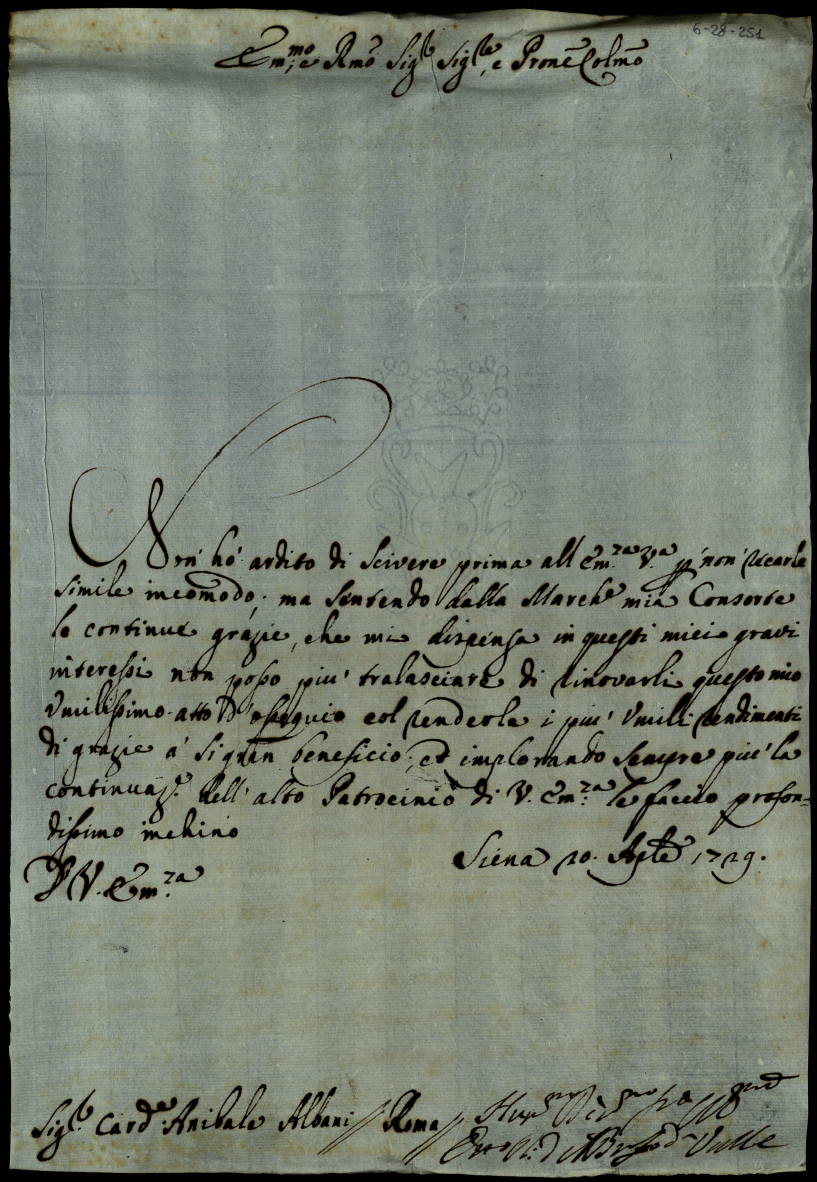 6-28-251
Em:mo e Rmo Sigr Sigre, e Prone Colmo
Non' ho' ardito di scivere prima all Em:za V.a p' non' recarle
simile incomodo; ma sentendo dalla March:e mia Consorte
le continue grazie, che mi dispensa in questi miei gravi
interessi non posso piu' tralasciare di rinovarli questo mio
Vmilissimo atto d'ossequio col renderle i piu' Vmili rendimenti
di grazie a' si gran beneficio; et implorando sempre piu' la
continuaz.e dell' alto Patrocinio di V. Em:za le faccio profon=
dissimo inchino
Siena 20. Agte 1729.
D V. Em:za
Sigr Card:e Anibale Albani // Roma //
Valle